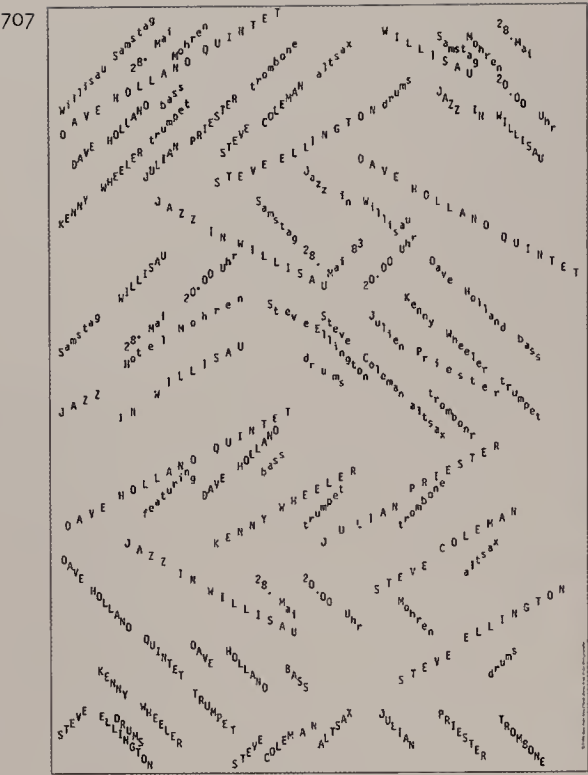 707
Willisau Samstag
28. Mai Mohren
DAVE HOLLAND QUINTET
DAVE HOLLAND bass
KENNY WHEELER trumpet
JULIAN PRIESTER trombone
STEVE COLEMAN altsax
STEVE ELLINGTON drums
WILLISAU
Samstag
Mohren
28. Mai
20.00 Uhr
JAZZ IN WILLISAU
DAVE HOLLAND QUINTET
Jazz in Willisau
JAZZ IN WILLISAU
Samstag 28. Mai 83
20.00 Uhr
Samstag WILLISAU
28. Mai 20.00 Uhr
Hotel Mohren
JAZZ IN WILLISAU
Dave Holland bass
Kenny Wheeler trumpet
Julien Priester
trombonr
Steve Ellington
drums
Steve Coleman altsax
DAVE HOLLAND QUINTET
featuring DAVE HOLLAND
bass
KENNY WHEELER
trumpet
JULIAN PRIESTER
trombone
STEVE COLEMAN
altsax
JAZZ IN WILLISAU
28. Mai
20.00 Uhr
Mohren
STEVE ELLINGTON
drums
DAVE HOLLAND QUINTET
DAVE HOLLAND BASS
KENNY WHEELER
TRUMPET
STEVE ELLINGTON
DRUMS
STEVE COLEMAN ALTSAX
JULIAN PRIESTER TROMBONE